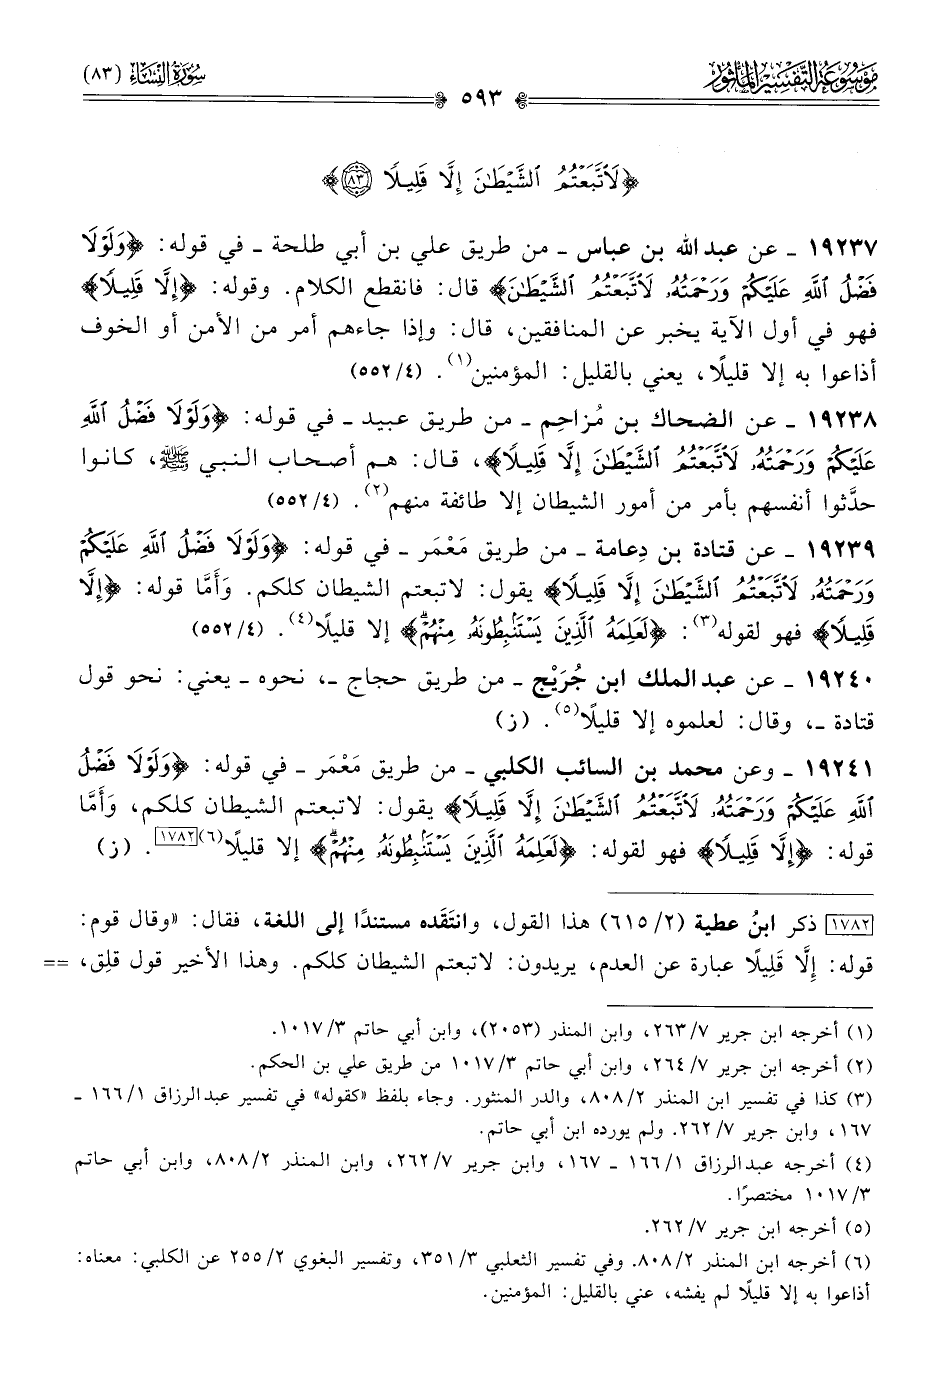 موسوعة التفسير المأثور
سورة النساء (٨٣)
٥٩٣
﴿لَاتَّبَعْتُمُ الشَّيْطَانَ إِلَّا قَلِيلًا ٨٣﴾
١٩٢٣٧ ـ عن عبد الله بن عباس ـ من طريق علي بن أبي طلحة ـ في قوله: ﴿وَلَوْلَا
فَضْلُ اللَّهِ عَلَيْكُمْ وَرَحْمَتُهُ لَاتَّبَعْتُمُ الشَّيْطَانَ﴾ قال: فانقطع الكلام. وقوله: ﴿إِلَّا قَلِيلًا﴾
فهو في أول الآية يخبر عن المنافقين، قال: وإذا جاءهم أمر من الأمن أو الخوف
أذاعوا به إلا قليلًا، يعني بالقليل: المؤمنين(١). (٤/٥٥٢)
١٩٢٣٨ ـ عن الضحاك بن مُزاحِم ـ من طريق عبيد ـ في قوله: ﴿وَلَوْلَا فَضْلُ اللَّهِ
عَلَيْكُمْ وَرَحْمَتُهُ لَاتَّبَعْتُمُ الشَّيْطَانَ إِلَّا قَلِيلًا﴾، قال: هم أصحاب النبي ﷺ، كانوا
حدَّثوا أنفسهم بأمر من أمور الشيطان إلا طائفة منهم(٢). (٤/٥٥٢)
١٩٢٣٩ ـ عن قتادة بن دِعامة ـ من طريق مَعْمَر ـ في قوله: ﴿وَلَوْلَا فَضْلُ اللَّهِ عَلَيْكُمْ
وَرَحْمَتُهُ لَاتَّبَعْتُمُ الشَّيْطَانَ إِلَّا قَلِيلًا﴾ يقول: لاتبعتم الشيطان كلكم. وَأَمَّا قوله: ﴿إِلَّا
قَلِيلًا﴾ فهو لقوله(٣): ﴿لَعَلِمَهُ الَّذِينَ يَسْتَنْبِطُونَهُ مِنْهُمْ﴾ إلا قليلًا(٤). (٤/٥٥٢)
١٩٢٤٠ ـ عن عبد الملك ابن جُرَيْج ـ من طريق حجاج ـ، نحوه ـ يعني: نحو قول
قتادة ـ، وقال: لعلموه إلا قليلًا(٥). (ز)
١٩٢٤١ ـ وعن محمد بن السائب الكلبي ـ من طريق مَعْمَر ـ في قوله: ﴿وَلَوْلَا فَضْلُ
اللَّهِ عَلَيْكُمْ وَرَحْمَتُهُ لَاتَّبَعْتُمُ الشَّيْطَانَ إِلَّا قَلِيلًا﴾ يقول: لاتبعتم الشيطان كلكم، وَأَمَّا
قوله: ﴿إِلَّا قَلِيلًا﴾ فهو لقوله: ﴿لَعَلِمَهُ الَّذِينَ يَسْتَنْبِطُونَهُ مِنْهُمْ﴾ إلا قليلًا(٦)[١٧٨٢]. (ز)
[١٧٨٢] ذكر ابنُ عطية (٢/٦١٥) هذا القول، وانتَقَده مستندًا إلى اللغة، فقال: «وقال قوم:
قوله: إِلَّا قَلِيلًا عبارة عن العدم، يريدون: لاتبعتم الشيطان كلكم. وهذا الأخير قول قلِق، ==
(١) أخرجه ابن جرير ٧/٢٦٣، وابن المنذر (٢٠٥٣)، وابن أبي حاتم ٣/١٠١٧.
(٢) أخرجه ابن جرير ٧/٢٦٤، وابن أبي حاتم ٣/١٠١٧ من طريق علي بن الحكم.
(٣) كذا في تفسير ابن المنذر ٢/٨٠٨، والدر المنثور. وجاء بلفظ «كقوله» في تفسير عبد الرزاق ١/١٦٦ ـ
١٦٧، وابن جرير ٧/٢٦٢. ولم يورده ابن أبي حاتم.
(٤) أخرجه عبد الرزاق ١/١٦٦ ـ ١٦٧، وابن جرير ٧/٢٦٢، وابن المنذر ٢/٨٠٨، وابن أبي حاتم
٣/١٠١٧ مختصرًا.
(٥) أخرجه ابن جرير ٧/٢٦٢.
(٦) أخرجه ابن المنذر ٢/٨٠٨. وفي تفسير الثعلبي ٣/٣٥١، وتفسير البغوي ٢/٢٥٥ عن الكلبي: معناه:
أذاعوا به إلا قليلًا لم يفشه، عني بالقليل: المؤمنين.